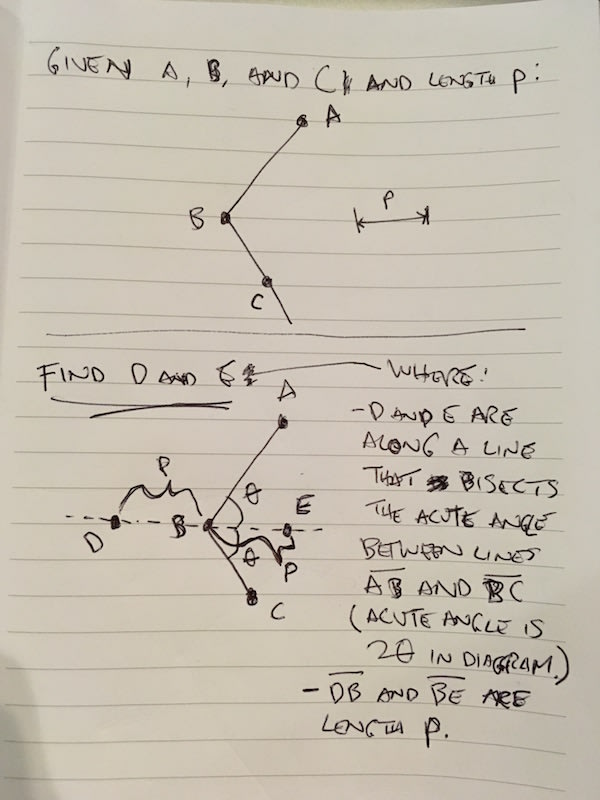 GIVEN A, B, AND C AND LENGTH P:
A
P
B
C
FIND D AND E
WHERE:
A
- D AND E ARE
ALONG A LINE
THAT BISECTS
THE ACUTE ANGLE
BETWEEN LINES
AB AND BC
(ACUTE ANGLE IS
2θ IN DIAGRAM.)
- DB AND BE ARE
LENGTH P.
P
θ
E
D
B
θ
P
C